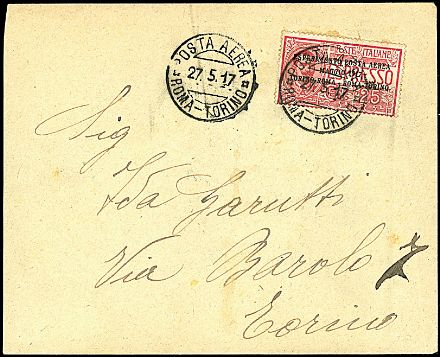 POSTA AEREA
27.5.17
ROMA-TORINO
POSTE ITALIANE
ESPERIMENTO POSTA AEREA
MAGGIO 1917
TORINO-ROMA · ROMA-TORINO
ESPRESSO
25
27.5.17
ROMA-TORINO
Sig
Ida Garutti
Via Barolo 7
Torino